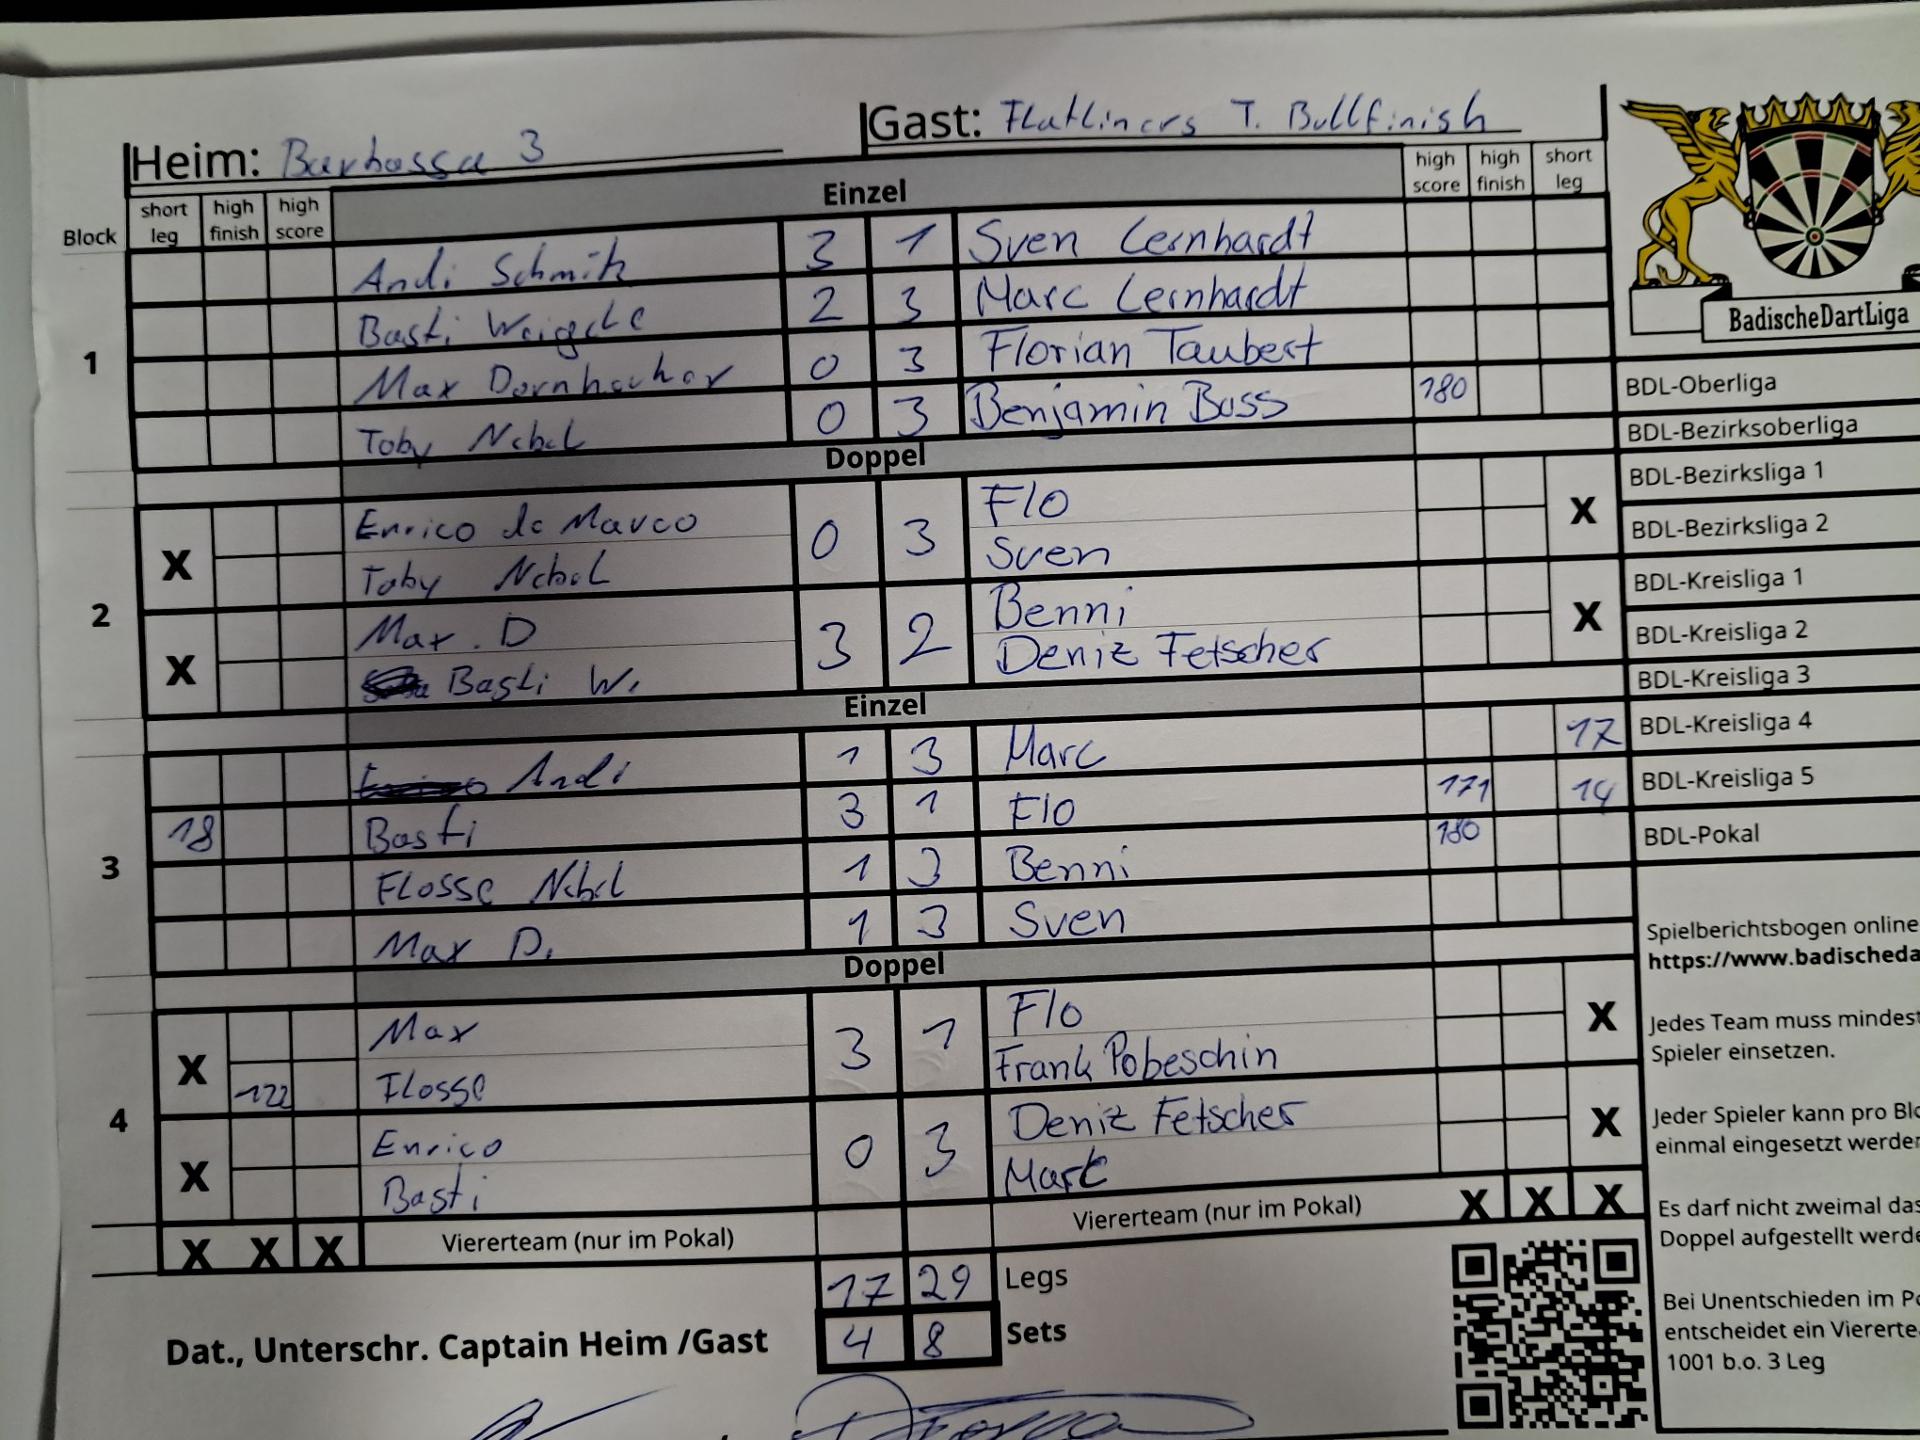 Heim: Barbossa 3
Gast: Flatliners T. Bullfinish
Block
short leg
high finish
high score
Einzel
high score
high finish
short leg
1
Andi Schmitz 3 1 Sven Lernhardt
Basti Weigele 2 3 Marc Lernhardt
Max Dornhecker 0 3 Florian Taubert
Toby Nebel 0 3 Benjamin Boss 180
Doppel
2
X Enrico de Marco 0 3 Flo X
Toby Nebel Sven
X Max. D 3 2 Benni X
Basti W. Deniz Fetscher
Einzel
3
Andi 1 3 Marc 17
18 Basti 3 1 Flo 171 14
Flosse Nebel 1 3 Benni 180
Max D. 1 3 Sven
Doppel
4
X Max 3 1 Flo X
122 Flosse Frank Pobeschin
X Enrico 0 3 Deniz Fetscher X
Basti Mark
X X X Viererteam (nur im Pokal) Viererteam (nur im Pokal) X X X
17 29 Legs
4 8 Sets
Dat., Unterschr. Captain Heim /Gast
BadischeDartLiga
BDL-Oberliga
BDL-Bezirksoberliga
BDL-Bezirksliga 1
BDL-Bezirksliga 2
BDL-Kreisliga 1
BDL-Kreisliga 2
BDL-Kreisliga 3
BDL-Kreisliga 4
BDL-Kreisliga 5
BDL-Pokal
Spielberichtsbogen online
https://www.badischeda
Jedes Team muss mindest
Spieler einsetzen.
Jeder Spieler kann pro Blo
einmal eingesetzt werde
Es darf nicht zweimal das
Doppel aufgestellt werde
Bei Unentschieden im Po
entscheidet ein Viererte
1001 b.o. 3 Leg